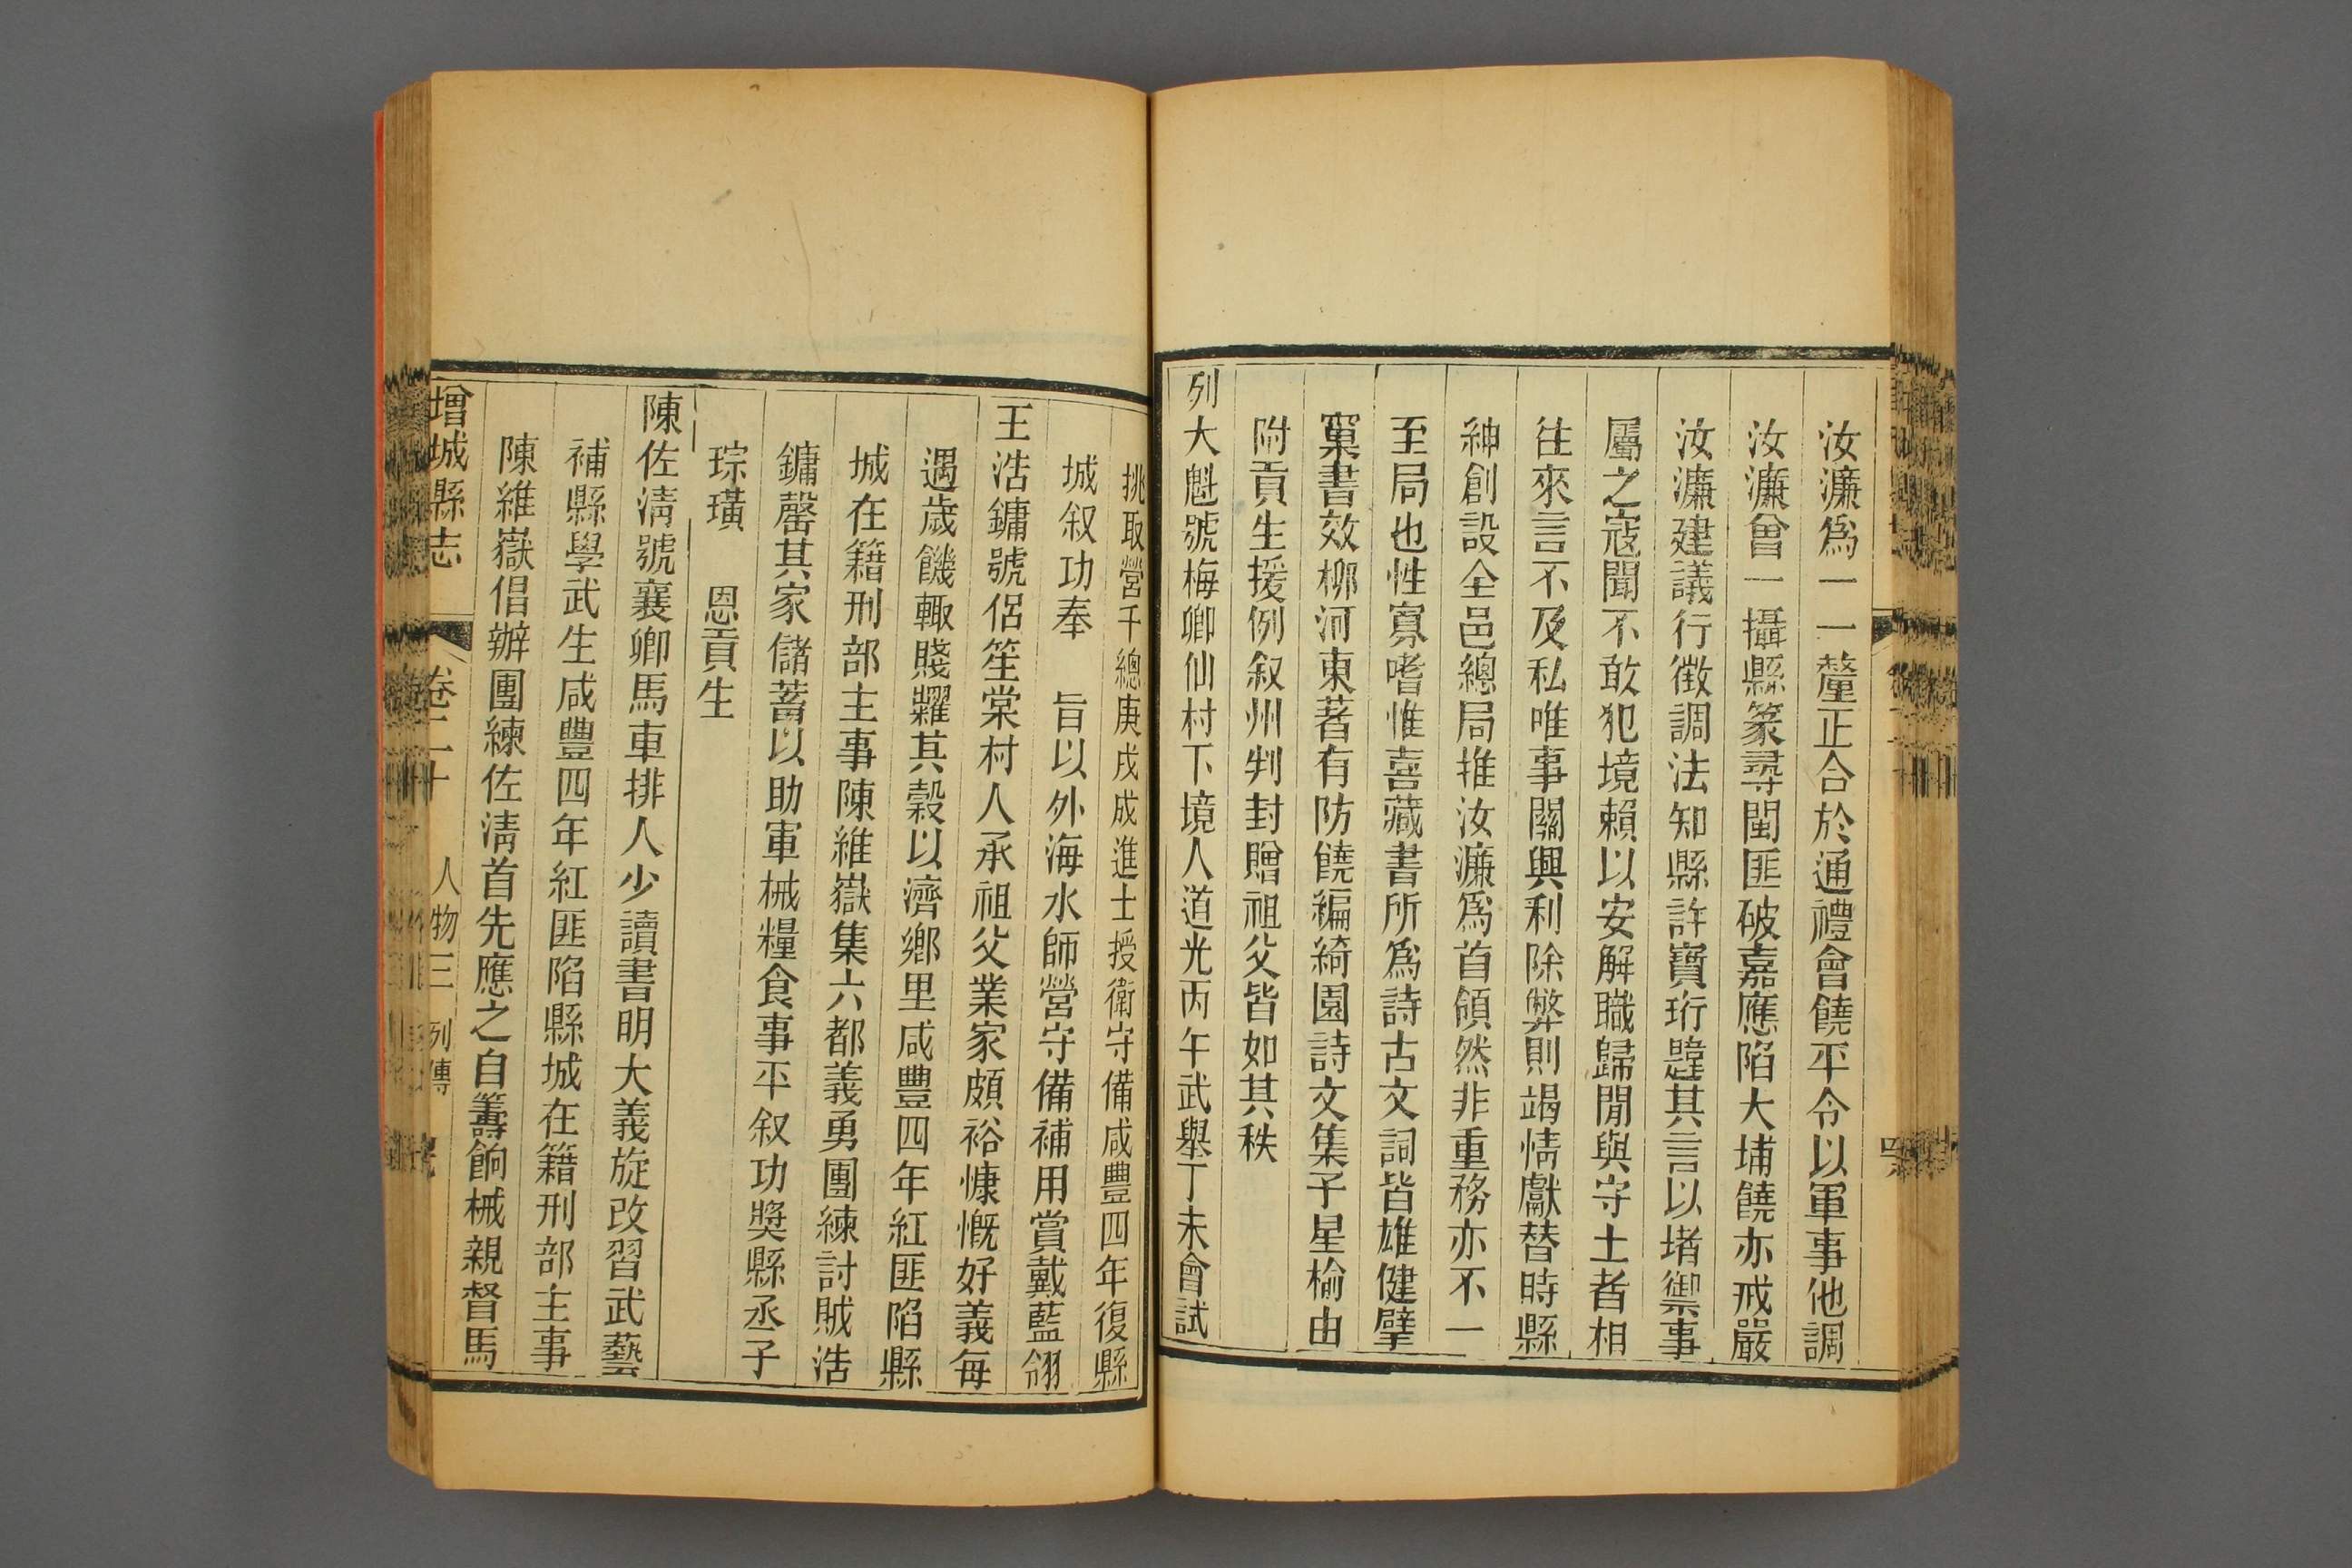 汝濂爲一一釐正合於通禮會饒平令以軍事他調
汝濂曾一攝縣篆尋閩匪破嘉應陷大埔饒亦戒嚴
汝濂建議行徵調法知縣許寶珩韙其言以堵禦事
屬之寇聞不敢犯境賴以安解職歸閒與守土者相
往來言不及私唯事關興利除弊則竭情獻替時縣
紳創設全邑總局推汝濂爲首領然非重務亦不一
至局也性寡嗜惟喜藏書所爲詩古文詞皆雄健擘
窠書效柳河東著有防饒編綺園詩文集子星榆由
附貢生援例叙州判封贈祖父皆如其秩
列大魁號梅卿仙村下境人道光丙午武舉丁未會試
挑取營千總庚戌成進士授衛守備咸豐四年復縣
城叙功奉 旨以外海水師營守備補用賞戴藍翎
王浩鏞號侶笙棠村人承祖父業家頗裕慷慨好義每
遇歲饑輙賤糶其穀以濟鄉里咸豐四年紅匪陷縣
城在籍刑部主事陳維嶽集六都義勇團練討賊浩
鏞罄其家儲蓄以助軍械糧食事平叙功獎縣丞子
琮璜 恩貢生
陳佐淸號襄卿馬車排人少讀書明大義旋改習武藝
補縣學武生咸豐四年紅匪陷縣城在籍刑部主事
陳維嶽倡辦團練佐淸首先應之自籌餉械親督馬
增城縣志 卷二十 人物三 列傳